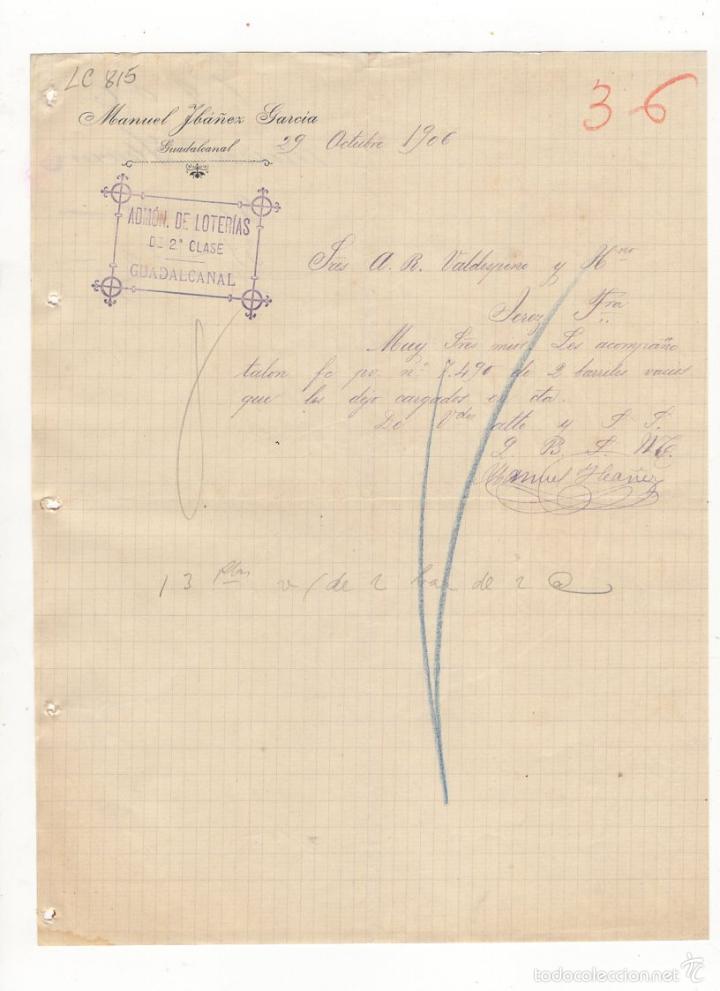 LC 815
36
Manuel Ibáñez García
Guadalcanal
29 Octubre 1906
ADMÓN. DE LOTERÍAS
DE 2ª CLASE
GUADALCANAL
Sres A. R. Valdespino y Hno
Jerez Fra
Muy Sres mios: Les acompaño
talon fc pv. nº 7.490 de 2 barriles vacios
que les dejo cargados en sta.
De Vdes atto y S. S.
Q. B. S. M.
Manuel Ibáñez
13 ptas v/ de 2 de 2 @
todocoleccion.net